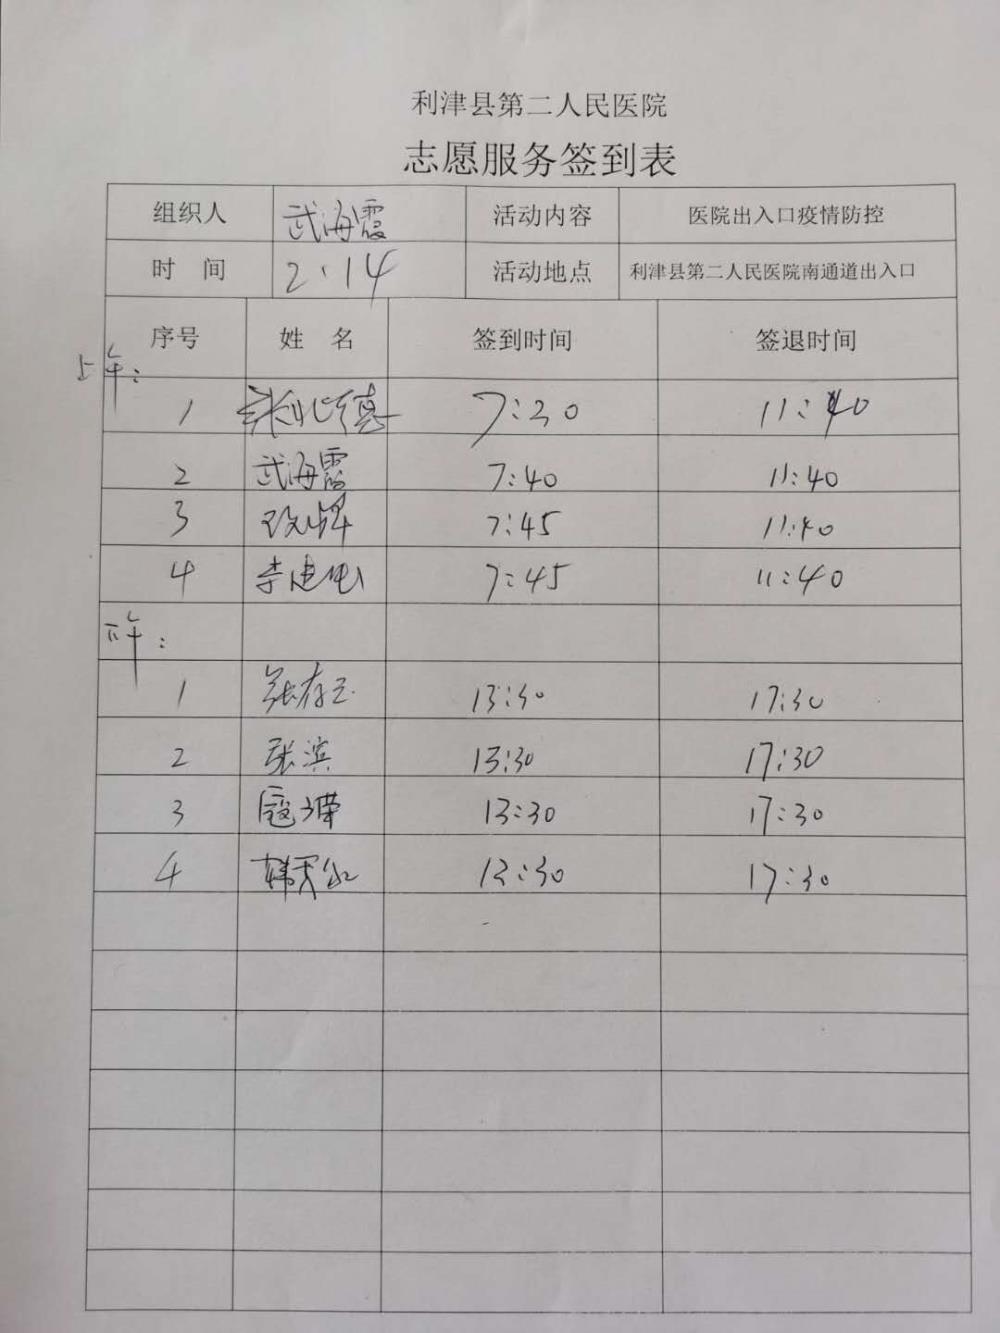 利津县第二人民医院
志愿服务签到表
组织人 武海霞 活动内容 医院出入口疫情防控
时 间 2.14 活动地点 利津县第二人民医院南通道出入口
序号 姓 名 签到时间 签退时间
上午:
1 7:30 11:40
2 武海霞 7:40 11:40
3 7:45 11:40
4 7:45 11:40
下午:
1 13:30 17:30
2 张滨 13:30 17:30
3 13:30 17:30
4 13:30 17:30